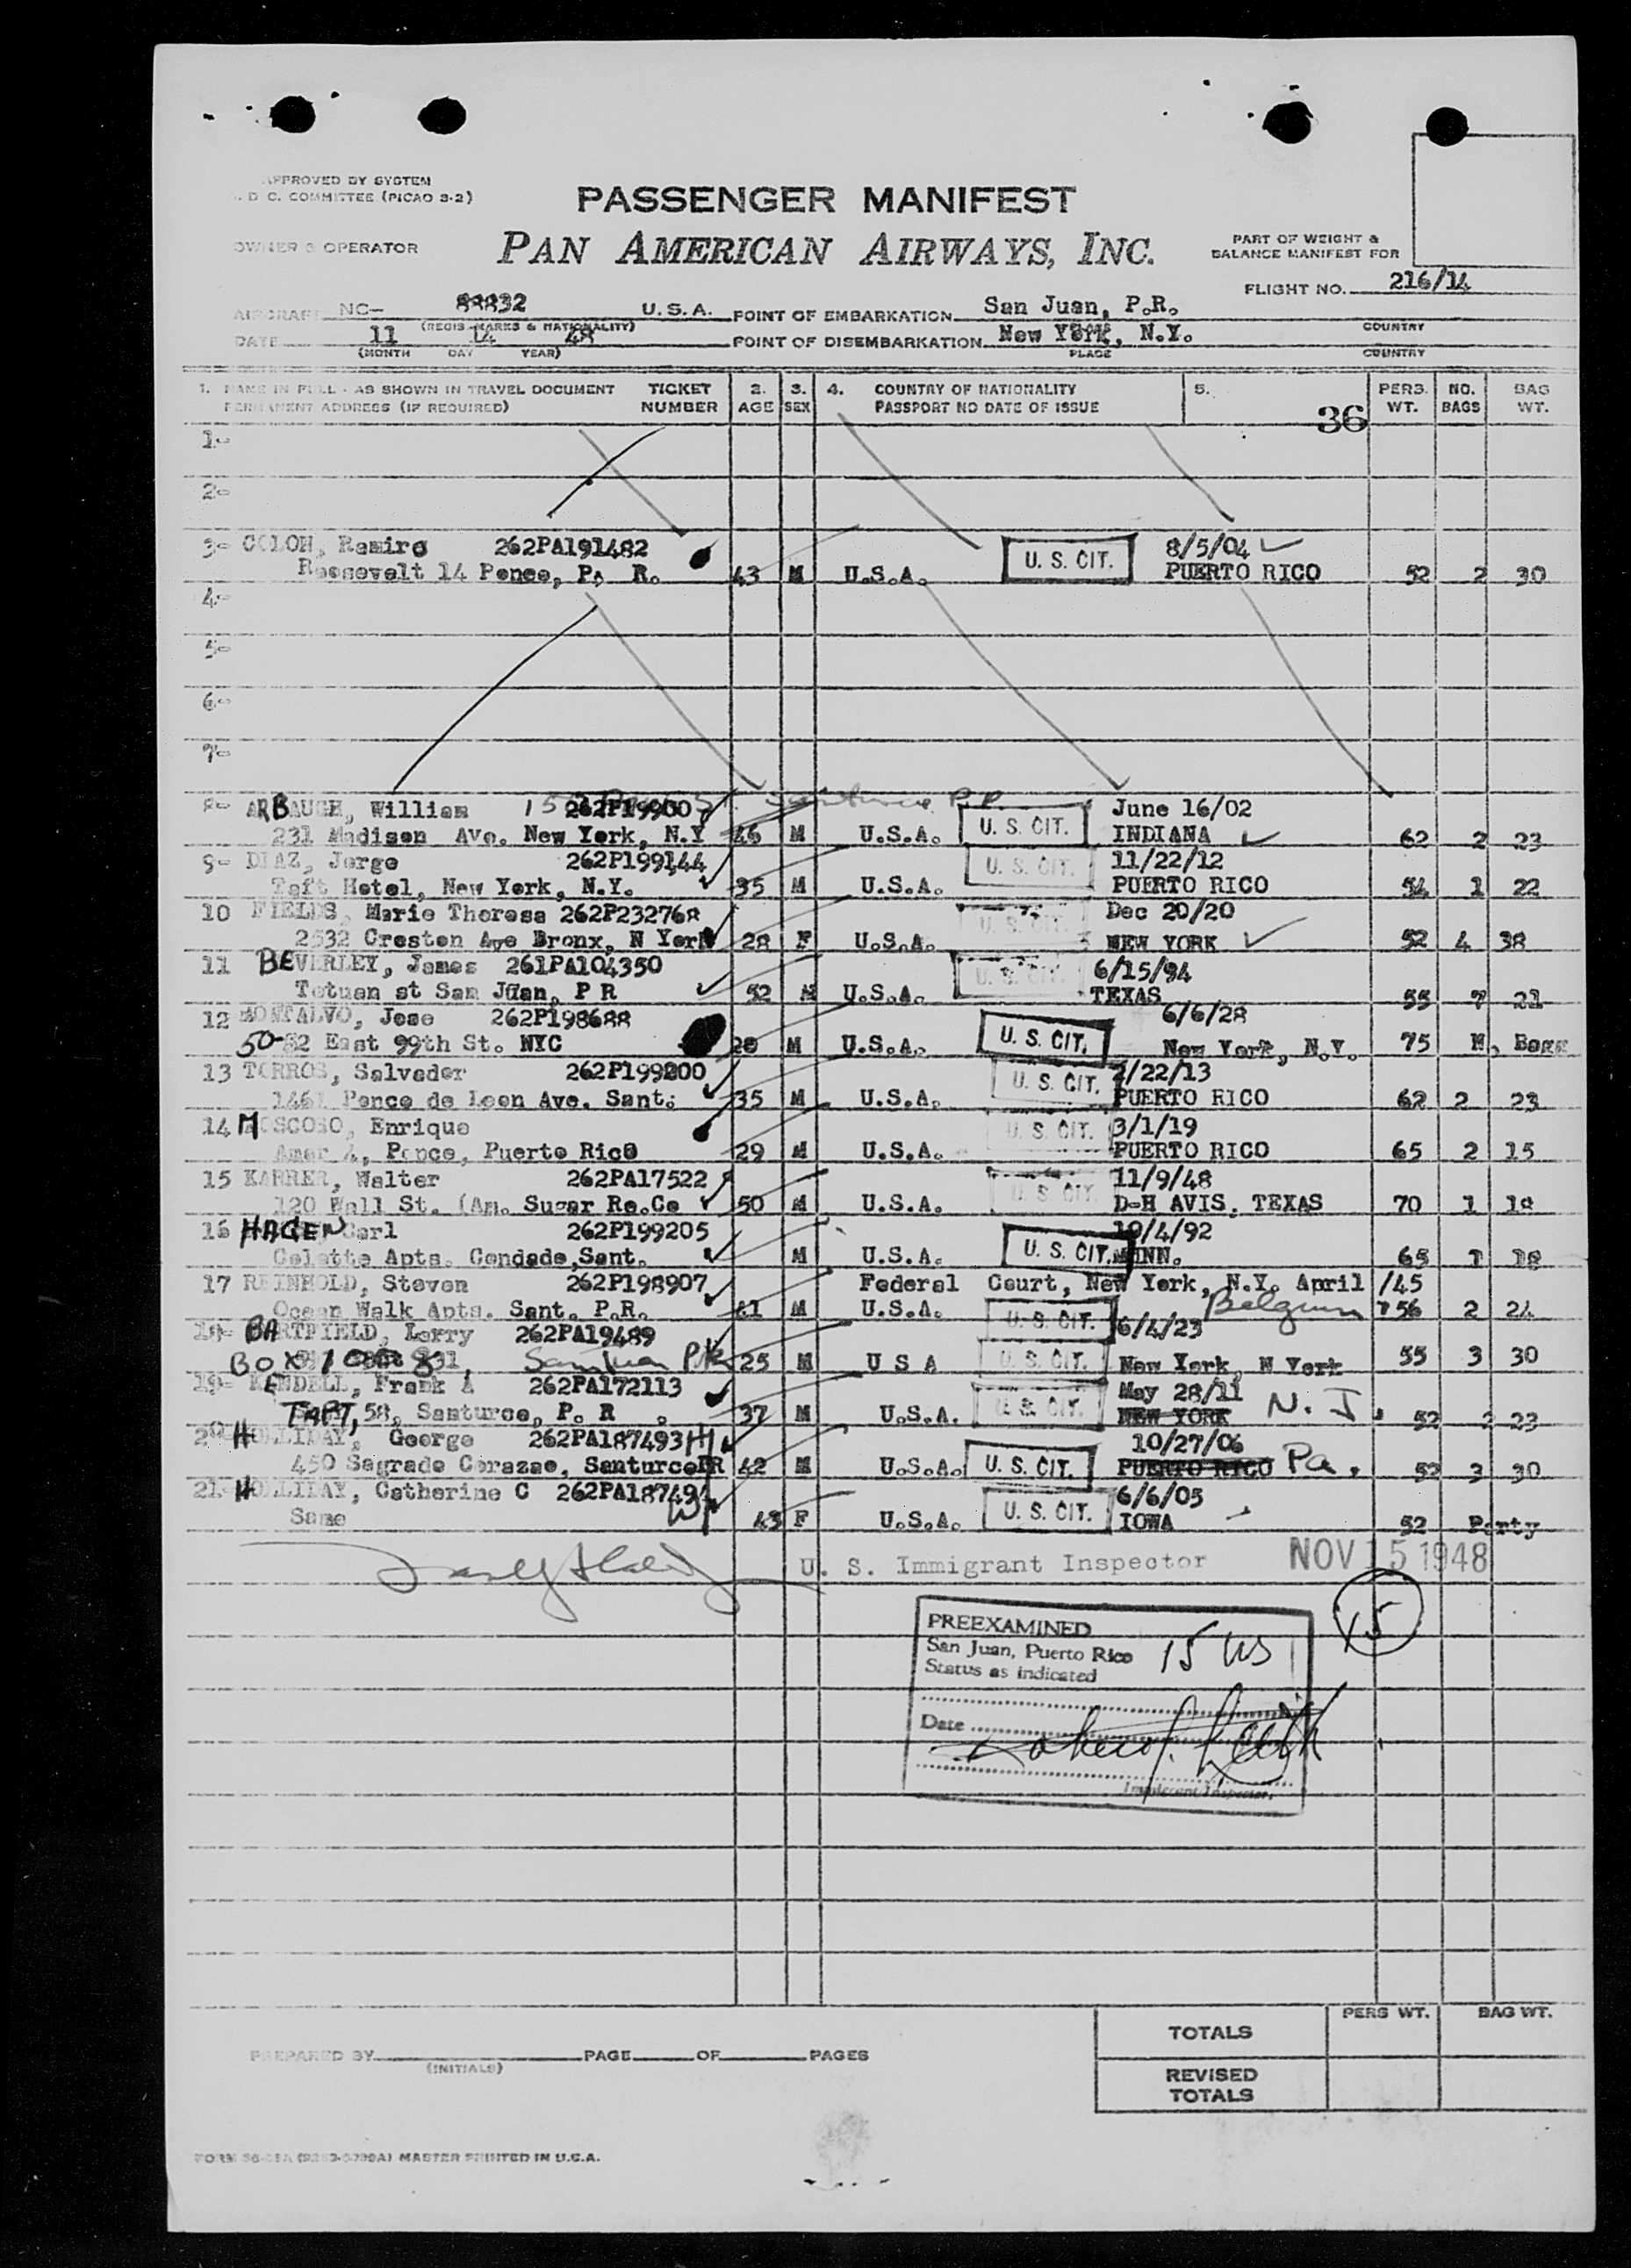 APPROVED BY SYSTEM
D C. COMMITTEE (PICAO S-2)
PASSENGER MANIFEST
OWNER & OPERATOR
PAN AMERICAN AIRWAYS, INC.
PART OF WEIGHT &
BALANCE MANIFEST FOR
FLIGHT NO. 216/14
AIRCRAFT NC- 88832 U.S.A. POINT OF EMBARKATION San Juan, P.R.
(REGIS-MARKS & NATIONALITY) COUNTRY
DATE 11 14 48 POINT OF DISEMBARKATION New York, N.Y.
(MONTH DAY YEAR) PLACE COUNTRY
1. NAME IN FULL - AS SHOWN IN TRAVEL DOCUMENT TICKET 2. 3. 4. COUNTRY OF NATIONALITY 5. PERS. NO. BAG
PERMANENT ADDRESS (IF REQUIRED) NUMBER AGE SEX PASSPORT NO DATE OF ISSUE 36 WT. BAGS WT.
1-
2-
3- COLON, Ramiro 262PA191482 8/5/04
Roosevelt 14 Ponce, P. R. 43 M U.S.A. U. S. CIT. PUERTO RICO 52 2 30
4-
5-
6-
7-
8- ARBAUGH, William 262P19900 Santurce P.R. June 16/02
231 Madison Ave. New York, N.Y 46 M U.S.A. U. S. CIT. INDIANA 62 2 23
9- DIAZ, Jorge 262P199144 11/22/12
Taft Hotel, New York, N.Y. 35 M U.S.A. U. S. CIT. PUERTO RICO 54 1 22
10 FIELDS, Marie Theresa 262P232768 Dec 20/20
2532 Creston Ave Bronx, N York 28 F U.S.A. U. S. CIT. NEW YORK 52 4 38
11 BEVERLEY, James 261PA104350 6/15/94
Tetuan st San Juan, P R 52 M U.S.A. U. S. CIT. TEXAS 55 21
12 MONTALVO, Jose 262P198688 6/6/28
50-52 East 99th St. NYC 20 M U.S.A. U. S. CIT. New York, N.Y. 75 N. Bags
13 TORROS, Salvador 262P199200 /22/13
1461 Ponce de Leon Ave. Sant. 35 M U.S.A. U. S. CIT. PUERTO RICO 62 2 23
14 MOSCOSO, Enrique 3/1/19
Amor A, Ponce, Puerto Rico 29 M U.S.A. U. S. CIT. PUERTO RICO 65 2 15
15 KARRER, Walter 262PA17522 11/9/48
120 Wall St. (Am. Sugar Re.Co 50 M U.S.A. U. S. CIT. D-H AVIS, TEXAS 70 1
16 HAGEN Carl 262P199205 10/4/92
Colette Apts. Condado,Sant. M U.S.A. U. S. CIT. MINN. 65 1 18
17 REINHOLD, Steven 262P198907 Federal Court, New York, N.Y. April /45
Ocean Walk Apts. Sant. P.R. 41 M U.S.A. U. S. CIT. Belgium 156 2 24
18- BARTFIELD, Lorry 262PA19489 6/4/23
BOX 1008 San Juan P.R. 25 M U S A U. S. CIT. New York, N York 55 3 30
19- KENDELL, Frank A 262PA172113 May 28/11
TAFT, 58, Santurce, P. R . 37 M U.S.A. U. S. CIT. NEW YORK N. J. 52 2 23
20 HOLLIDAY, George 262PA187493 H 10/27/06
450 Sagrado Corazao, SanturcePR 42 M U.S.A. U. S. CIT. PUERTO RICO Pa. 52 3 30
21- HOLLIDAY, Catherine C 262PA187494 W 6/6/05
Same 43 F U.S.A. U. S. CIT. IOWA 52 Party
U. S. Immigrant Inspector NOV 15 1948
15
PREEXAMINED
San Juan, Puerto Rico 15 US
Status as indicated
Date
Immigrant Inspector.
PERS WT. BAG WT.
TOTALS
PREPARED BY PAGE OF PAGES
(INITIALS)
REVISED
TOTALS
MASTER PRINTED IN U.S.A.